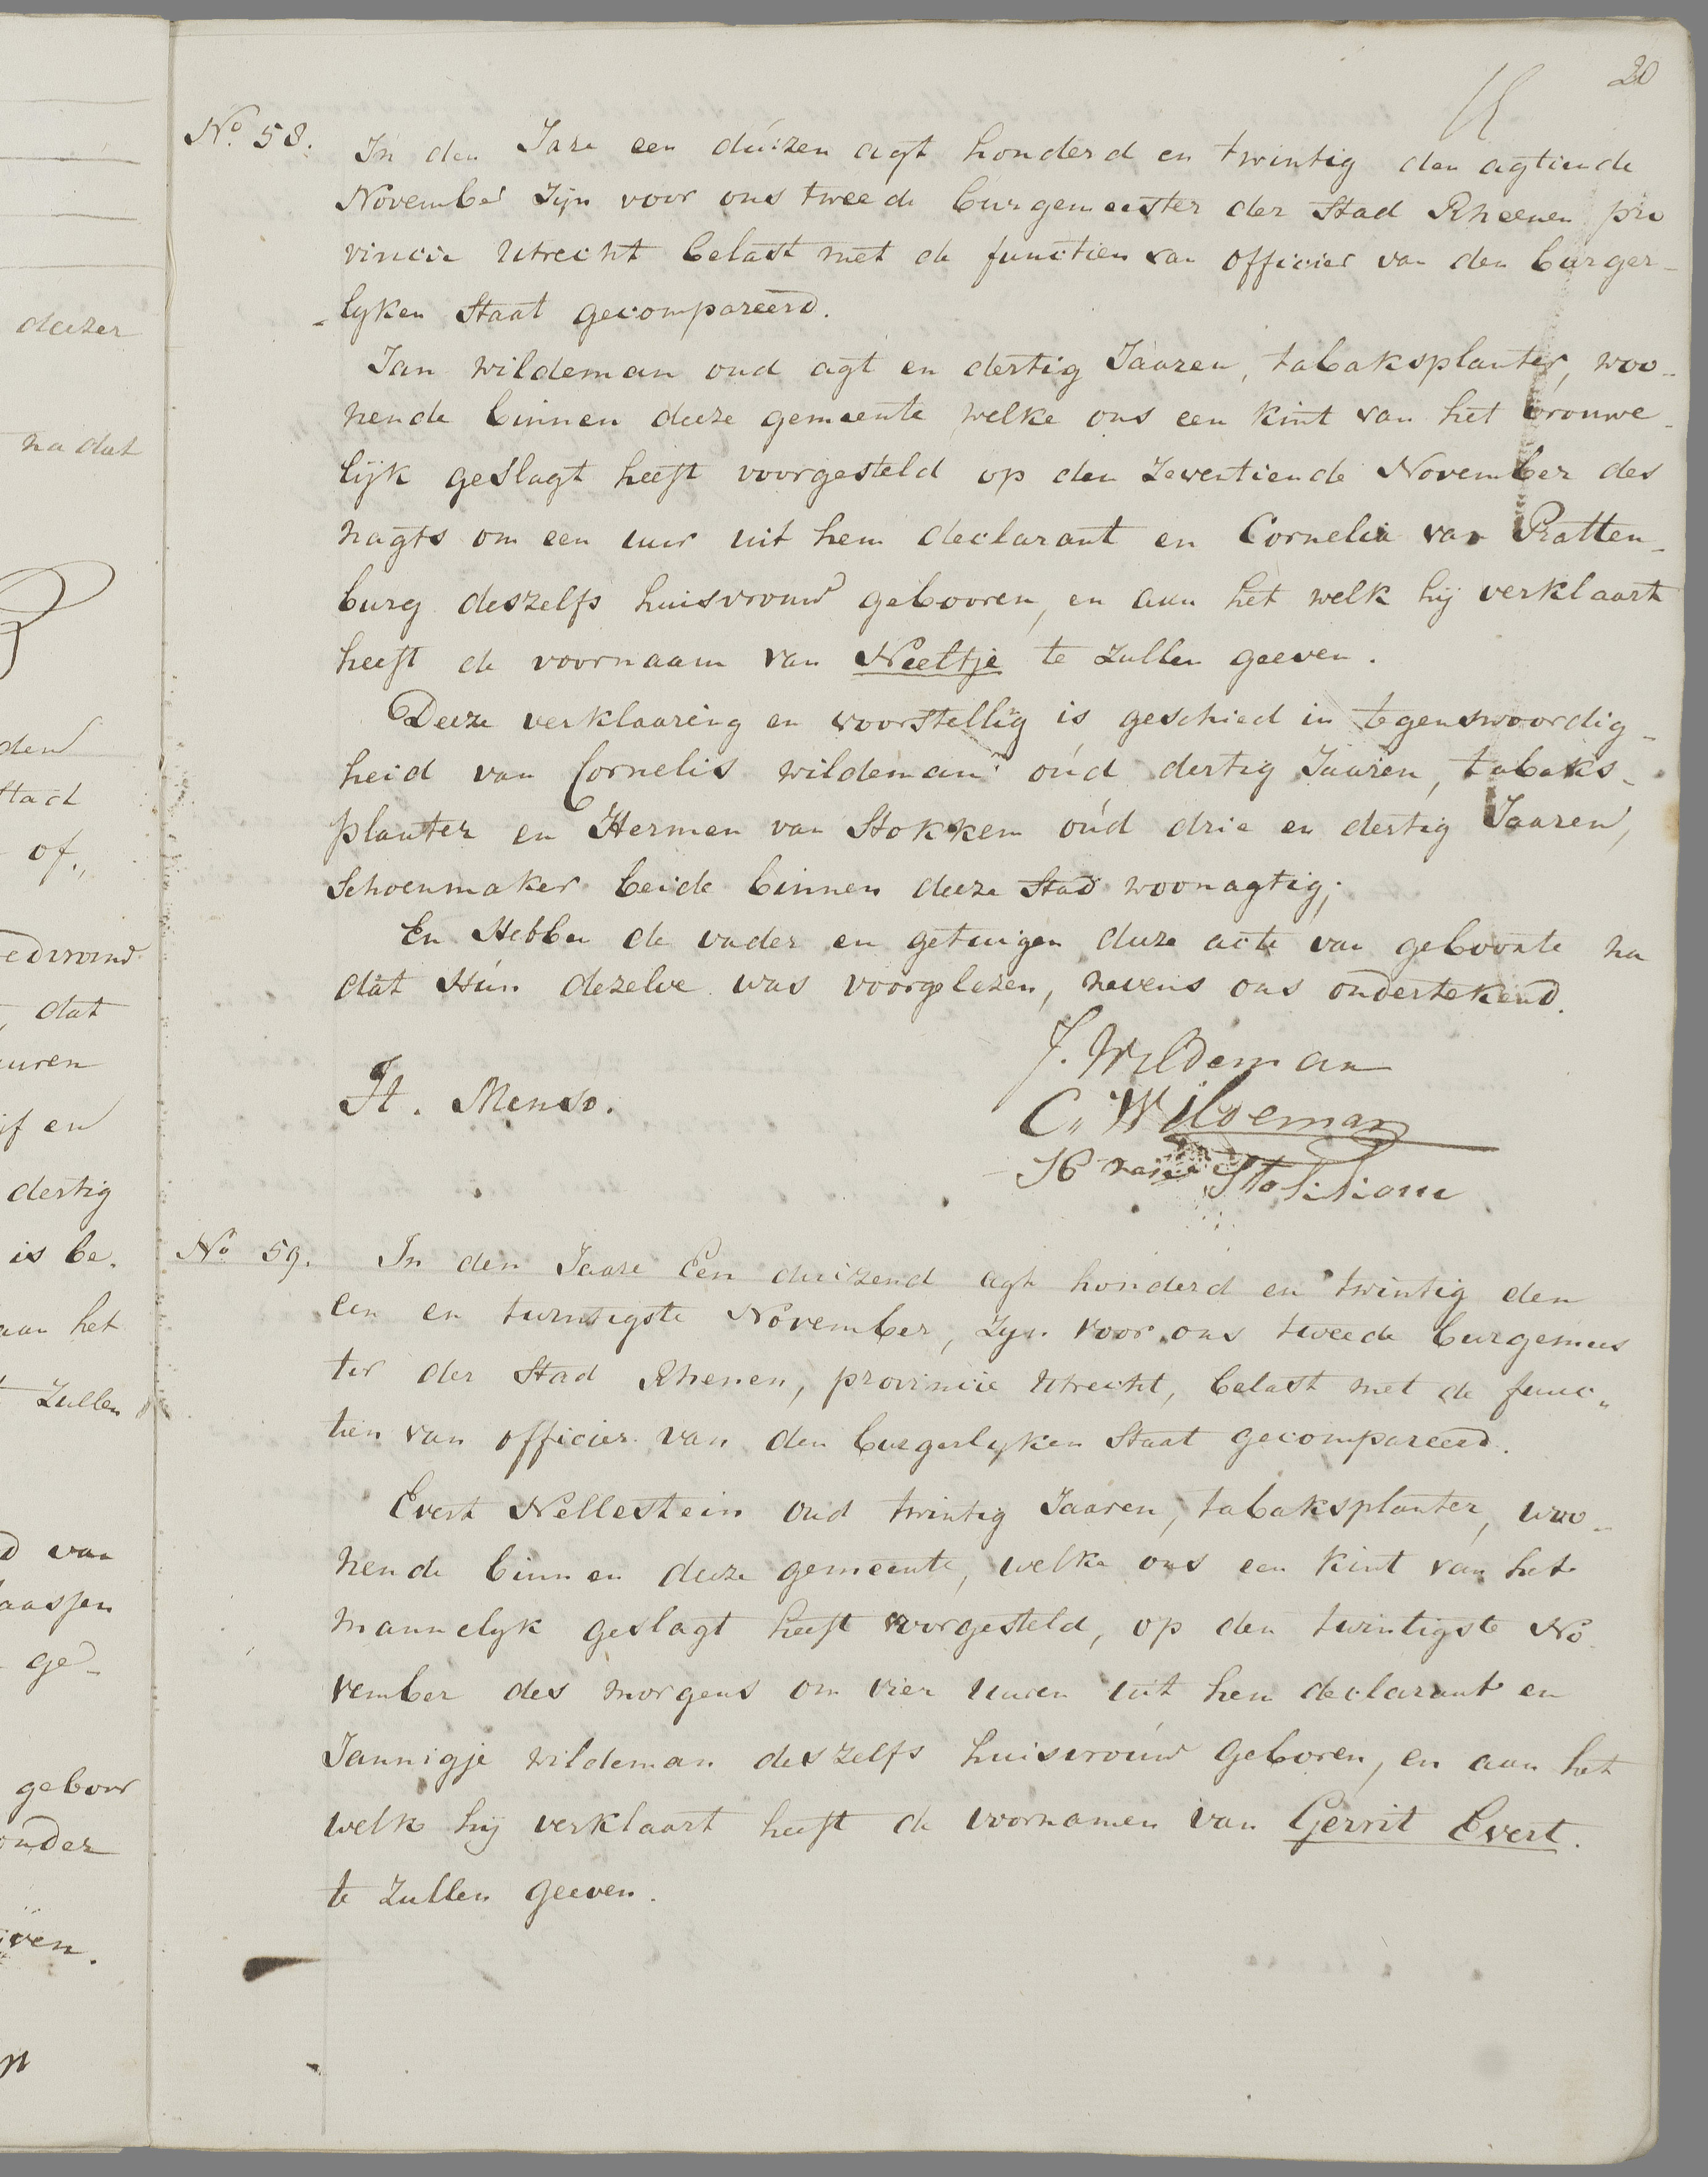 20
deezer
na dat
den
Stad
of.,
dat
uuren
en
dertig
is be.
aan het
Zullen
van
ge-
geboor
onder
No. 58.
In den Jare een duizen agt honderd en twintig den agtiende
November Zijn voor ons tweede burgemeester der Stad Rheenen pro
vincie Utrecht belast met de functien van officier van den burger-
-lyken Staat gecompareerd.
Jan wildeman oud agt en dertig Jaaren, tabaksplanter, woo-
nende binnen deeze gemeente welke ons een kint van het vrouwe-
lijk geslagt heeft voorgesteld op den Zeventiende November des
nagts om een uur uit hem declarant en Cornelia van Ratten-
burg deszelfs huisvrouw gebooren, en aan het welk hij verklaart
heeft de voornaam van Neeltje te zullen geeven.
Deeze verklaaring en voorstellig is geschied in tegenswoordig-
heid van Cornelis wildeman oud dertig Jaaren, tabaks-
planter en Hermen van Stokkem oud drie en dertig Jaaren,
Schoenmaker beide binnen deeze Stad woonagtig;
En Hebben de vader en getuigen deeze acte van geboorte na
dat Hun dezelve was voorgelezen, nevens ons ondertekend.
J. Wildeman
H. Menso.
C,, Wildeman
H van Stokkom
No 59.
In den Jaare Een duizend agt honderd en twintig den
een en twintigste November, Zyn voor ons tweede burgemees
ter der Stad Rhenen, provincie Utrecht, belast met de func„
tien van officier van den burgerlyken Staat gecompareerd.
Evert Nellestein oud twintig Jaaren, tabaksplanter, woo-
nende binnen deeze gemeente, welke ons een kint van het
mannelyk geslagt heeft voorgesteld, op den twintigste No
vember des morgens om vier uuren uit hem declarant en
Jannigje wildeman deszelfs huisvrouw geboren, en aan het
welk hij verklaart heeft de voornamen van Gerrit Evert.
te Zullen geeven.